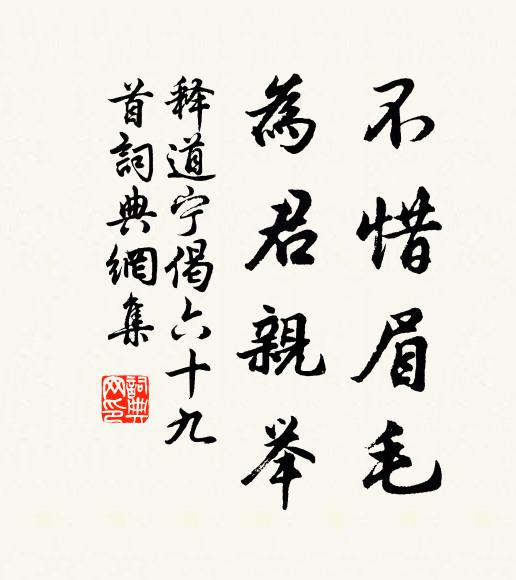 不惜眉毛
為君親举
释道宁偈六十九
首詞典網集
詞典
网印